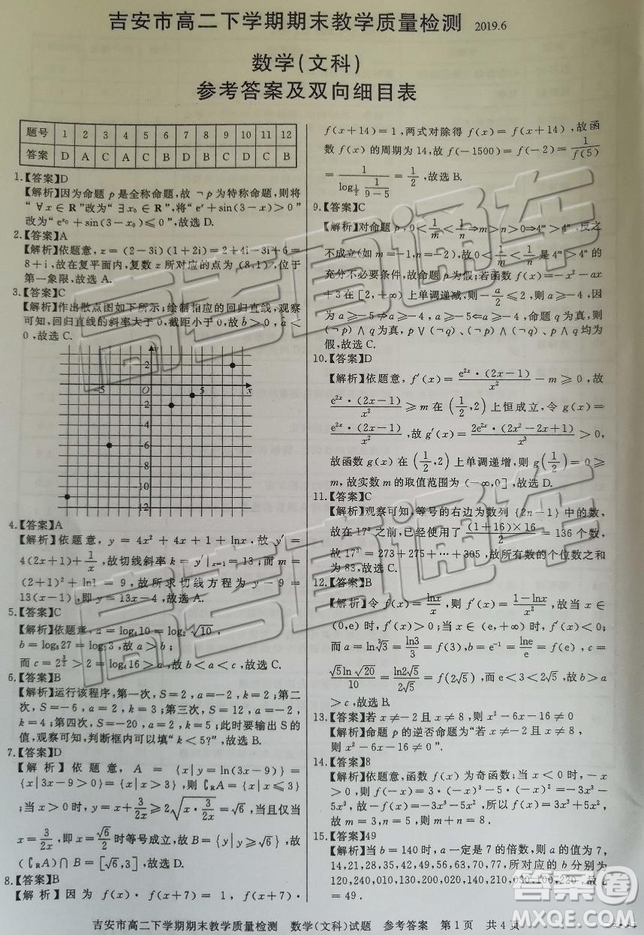 吉安市高二下学期期末教学质量检测 2019.6
数学(文科)
参考答案及双向细目表
题号 1 2 3 4 5 6 7 8 9 10 11 12
答案 D A C A C B D B C D C B
1.【答案】D
【解析】因为命题 p 是全称命题,故 ¬p 为特称命题,则将
“∀x∈R”改为“∃x₀∈R”,将“eˣ+sin(3-x)>0”
改为“e^{x₀}+sin(3-x₀)≤0”,故选 D.
2.【答案】A
【解析】依题意,z=(2-3i)(1+2i)=2+4i-3i+6=
8+i,故在复平面内,复数 z 所对应的点为(8,1),位于
第一象限,故选 A.
3.【答案】C
【解析】作出散点图如下所示;绘制相应的回归直线,观察
可知,回归直线的斜率大于 0,截距小于 0,故 b>0,a<
0,故选 C.
4.【答案】A
【解析】依题意,y=4x²+4x+1+lnx,故 y′=
4(2x+1)+1/x,故切线斜率 k=y′|ₓ₌₁=13;而 m=
(2+1)²+ln1=9,故所求切线方程为 y-9=
13(x-1),即 y=13x-4,故选 A.
5.【答案】C
b=log₈27=log₂3,故 a>b;
6.【答案】B
【解析】运行该程序,第一次,S=2,a=-2,k=2;第二
次,S=-2,a=2,k=3;第三次,S=12,a=-2,k=
4;第四次,S=-20,a=2,k=5;此时要输出 S 的
值,观察可知,判断框内可以填“k<5?”,故选 B.
7.【答案】D
【解析】依题意,A={x|y=ln(3x-9)}=
{x|3x-9>0}={x|x>3},则∁RA={x|x≤3}
;当 x>0 时,y=x+3/2x≥2√(x·3/2x)=√6,当且仅当
x=3/2x,即 x=√6/2时等号成立,故 B={y|y≥√6}
故(∁RA)∩B=[√6,3],故选 D.
8.【答案】B
【解析】因为 f(x)·f(x+7)=1,f(x+7)·
f(x+14)=1,两式对除得 f(x)=f(x+14),故函
数 f(x)的周期为 14,故 f(-1500)=f(-2)=1/f(5)
9.【答案】C
【解析】对命题 p,0<1/m<1/n⇒m>n>0⇒4ᵐ>4ⁿ,反之
不成立(如 m=-1,n=-2),故“0<1/m<1/n”是“4ᵐ>4ⁿ”的
充分不必要条件,故命题 p 为假;若函数 f(x)=-x²-ax
+3 在[2,+∞)上单调递减,则-a/2≤2,则 a≥-4,因
为 a>-5⇏a≥-4,a≥-4⇒a>-5,故命题 q 为真;则
10.【答案】D
【解析】依题意,f′(x)=e²ˣ·(2x-1)/x²-m≥0,故
e²ˣ·(2x-1)/x²≥m 在(1/2,2)上恒成立,令 g(x)=
e²ˣ·(2x-1)/x²,故 g′(x)=2e²ˣ·(2x²-2x+1)/x³>0,
故函数 g(x)在(1/2,2)上单调递增,则 g(x)>g(1/2)=0,
故实数 m 的取值范围为(-∞,0],故选 D.
11.【答案】C
【解析】观察可知,等号的右边为数列{2n-1}中的数
字,故在 17³ 之前,已经使用了(1+16)×16/2=136 个数,
故 17³=273+275+…+305,故所有的个位数之和
为 83,故选 C.
12.【答案】B
【解析】令 f(x)=lnx/x,则 f′(x)=(1-lnx)/x²,故当 x∈
(0,e)时,f′(x)>0,当 x∈(e,+∞)时,f′(x)<0;
而 a=ln√3/3=ln3/3=f(3),b=e⁻¹=lne/e=f(e),c=
√5ln√20/10=ln2√5/2√5=f(2√5),而 e<3<2√5,故 b>a>
c,故选 B.
13.【答案】若 x≠-2 且 x≠8,则 x²-6x-16≠0
【解析】命题 p 的逆否命题为“若 x≠-2 且 x≠8,则
x²-6x-16≠0”.
14.【答案】8
【解析】依题意,函数 f(x)为奇函数;当 x<0 时,-x>
0,f(-x)=3(-x)³-5(-x)²=-3x³-
5x²,故 f(x)=-f(-x)=3x³+5x²,故 m=3,n=
5,故 m+n=8.
15.【答案】49
【解析】当 b=140 时,a 一定是 7 的倍数,则 a 可取 7,
14,21,28,35,42,49,56,63,70,77,对应的 b 分别为
=49.
吉安市高二下学期期末教学质量检测 数学(文科)试题 参考答案 第 1 页 共 4 页
答案圈
MXQE.COM
高考直通车
高考直通车
高考直通车